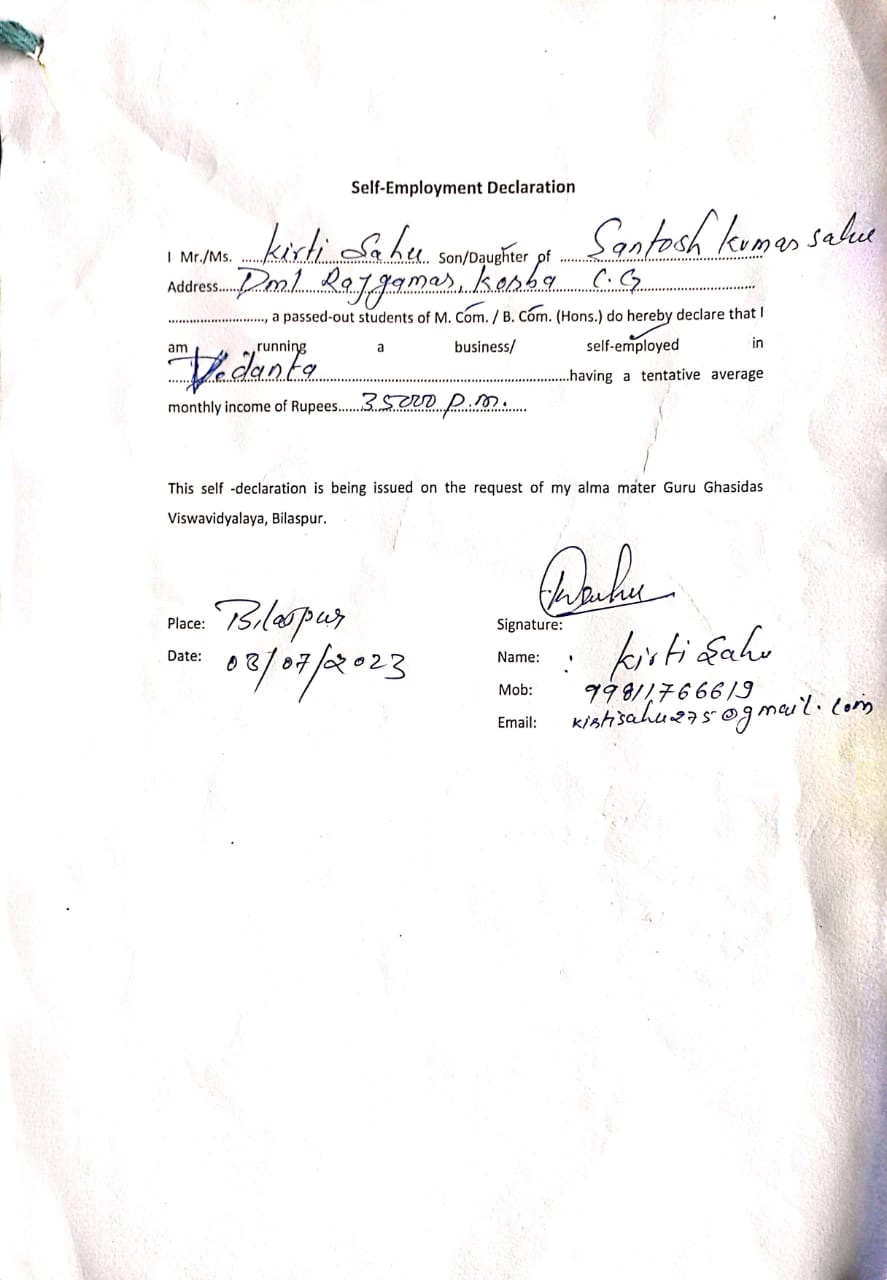 Self-Employment Declaration
I Mr./Ms. .....Kirti Sahu.. Son/Daughter of .....Santosh Kumar Sahu
Address.....Dml Rajgamar, Korba C.G.....
............................, a passed-out students of M. Com. / B. Com. (Hons.) do hereby declare that I
am running a business/ self-employed in
.....Vedanta.....having a tentative average
monthly income of Rupees.....35000 p.m......
This self -declaration is being issued on the request of my alma mater Guru Ghasidas
Viswavidyalaya, Bilaspur.
Place: Bilaspur
Signature:
Date: 03/07/2023
Name: : Kirti Sahu
Mob: 99811766619
Email: kirtisahu275@gmail.com